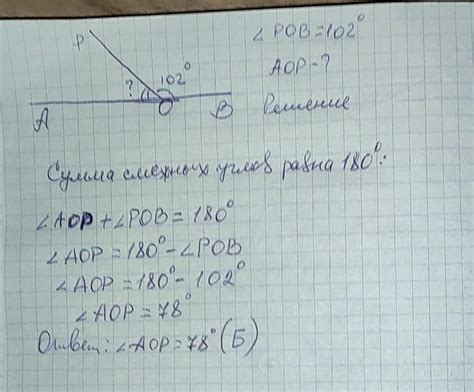 P
∠ POB = 102°
102°
?
AOP - ?
A
O
B
Решение
Сумма смежных углов равна 180°:
∠AOP + ∠POB = 180°
∠AOP = 180° - ∠POB
∠AOP = 180° - 102°
∠AOP = 78°
Ответ: ∠AOP = 78° (Б)